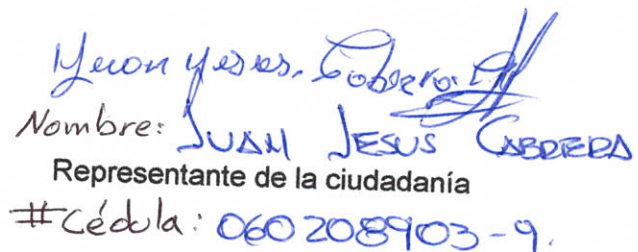 Nombre: JUAN JESUS CABRERA
Representante de la ciudadanía
#Cédula: 060208903-9.